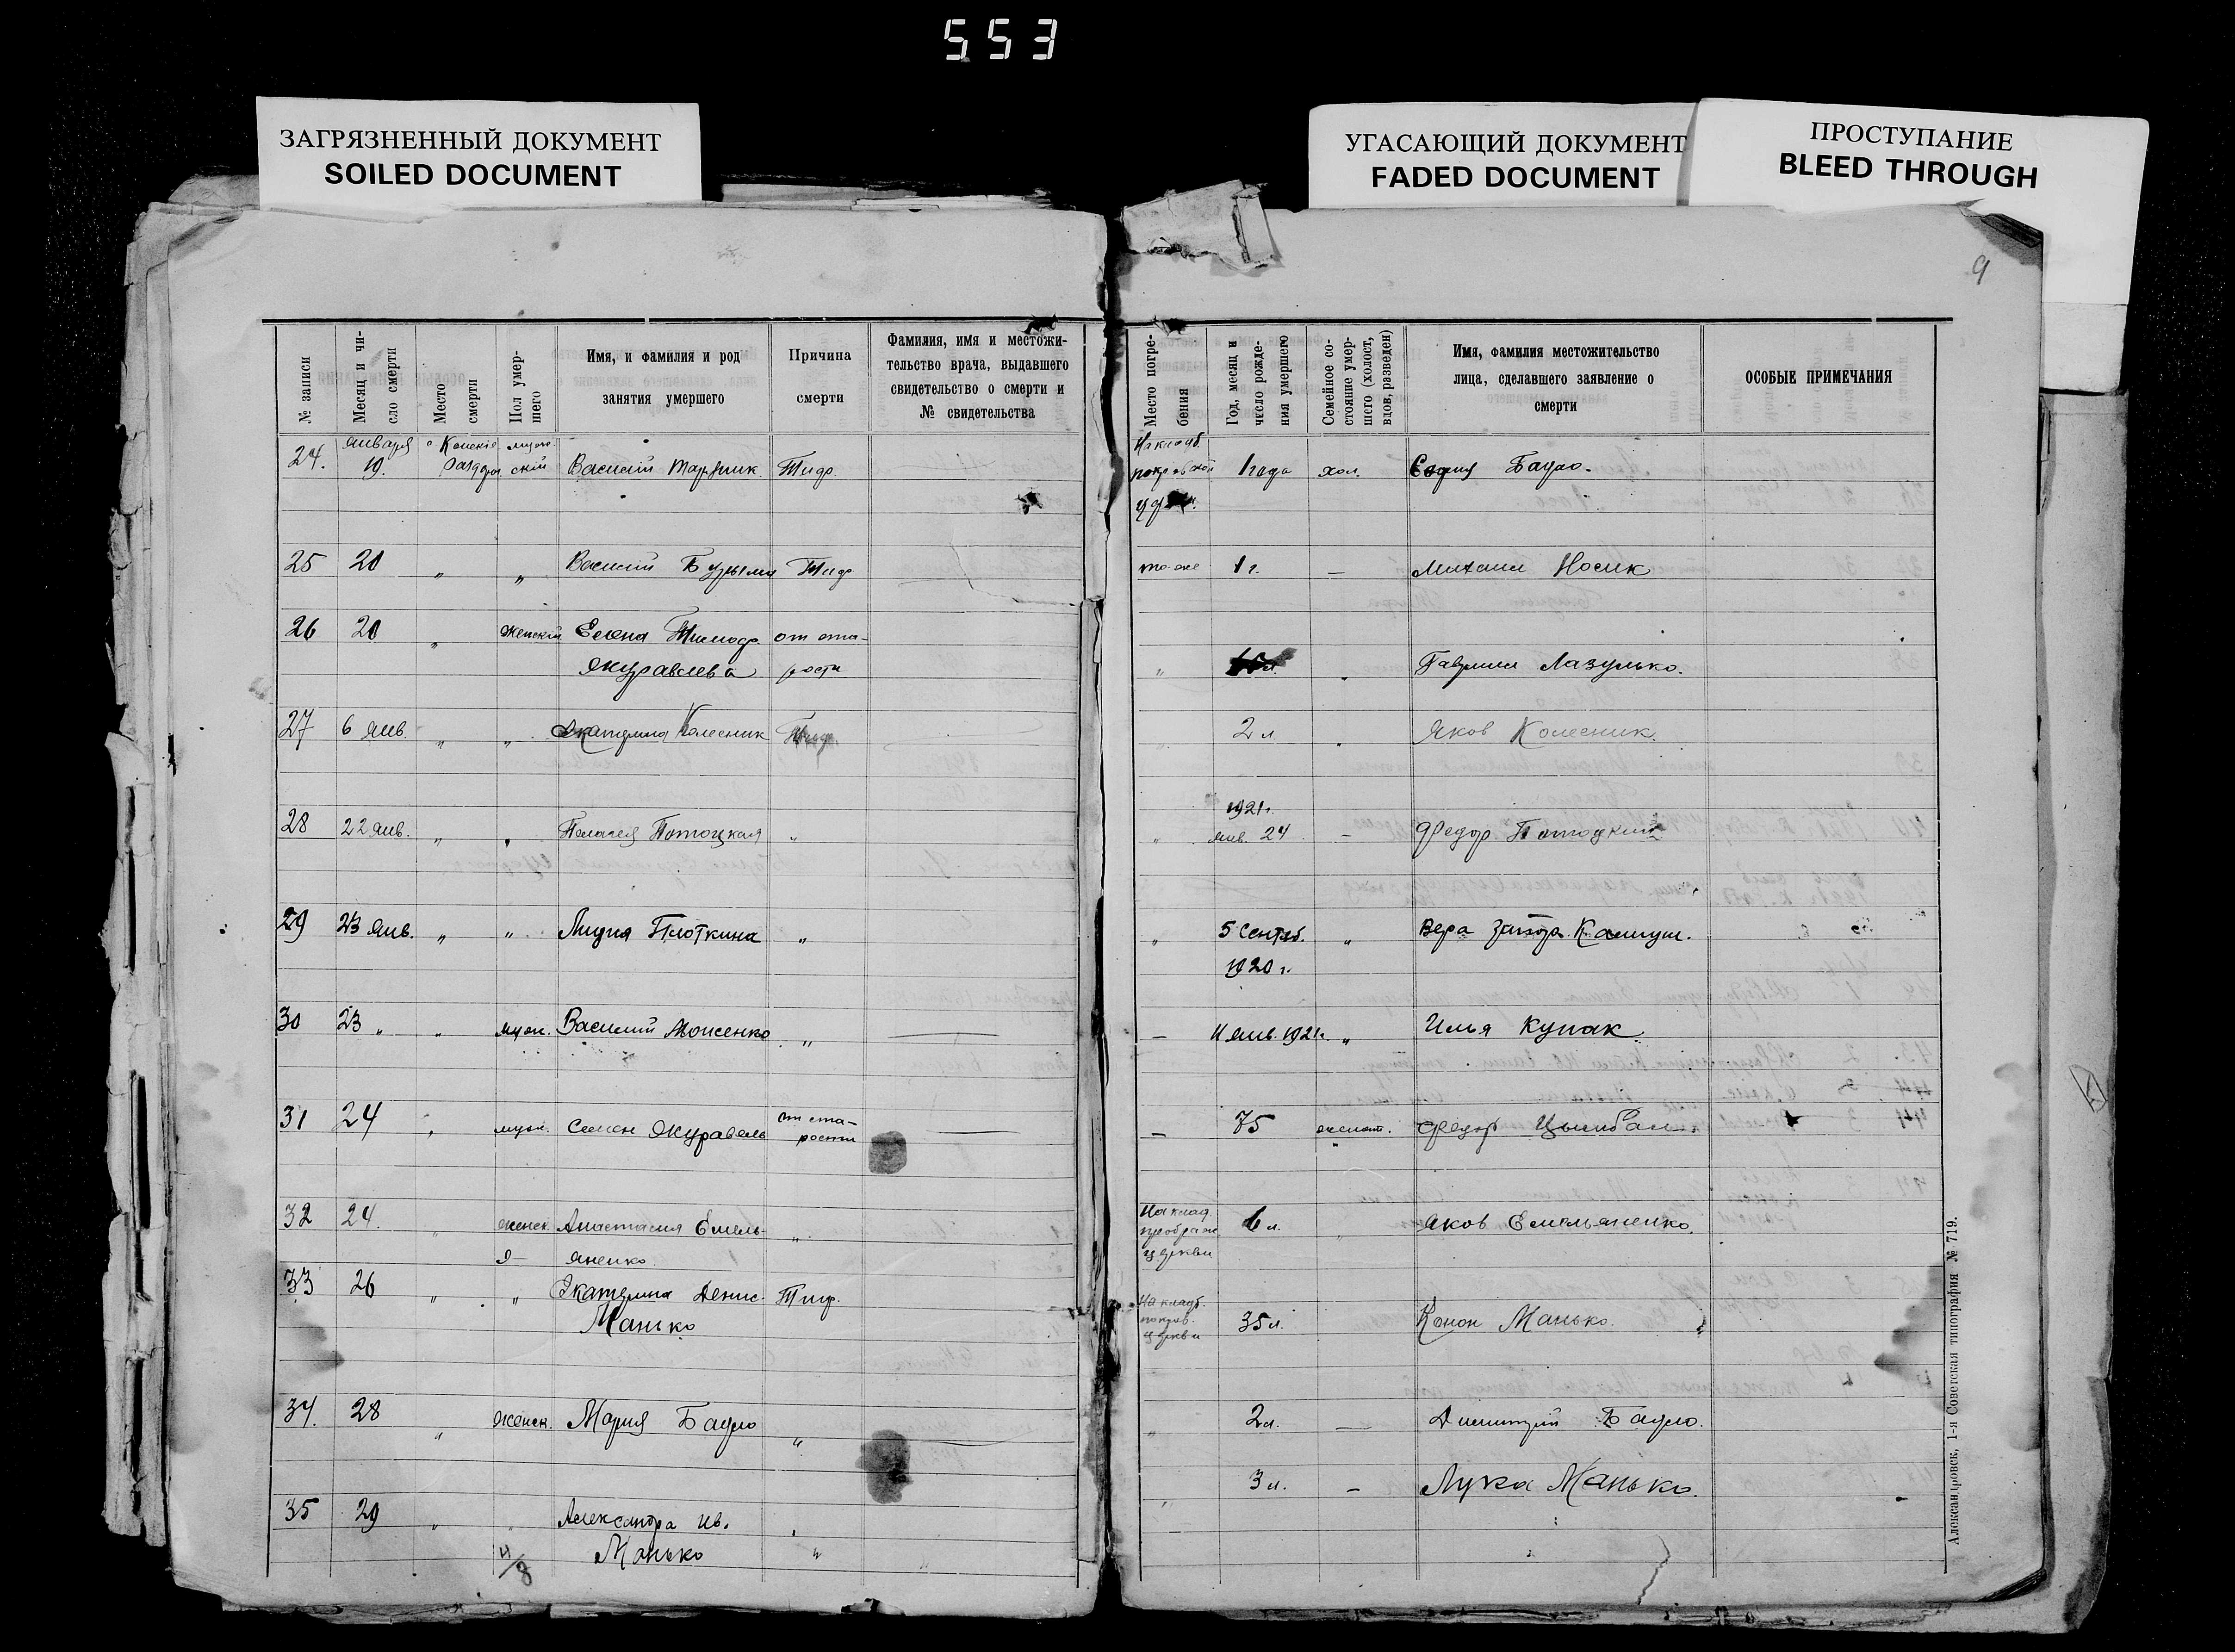 553
ЗАГРЯЗНЕННЫЙ ДОКУМЕНТ
SOILED DOCUMENT
УГАСАЮЩИЙ ДОКУМЕНТ
FADED DOCUMENT
ПРОСТУПАНИЕ
BLEED THROUGH
9
№ записи
Месяц и чи-
сло смерти
Место
смерти
Пол умер-
шего
Имя, и фамилия и род
занятия умершего
Причина
смерти
Фамилия, имя и местожи-
тельство врача, выдавшего
свидетельство о смерти и
№ свидетельства
Место погре-
бения
Год, месяц и
число рожде-
ния умершего
Семейное со-
стояние умер-
шего (холост,
вдов, разведен)
Имя, фамилия местожительство
лица, сделавшего заявление о
смерти
ОСОБЫЕ ПРИМЕЧАНИЯ
января мужс- На кладб.
24. 19. ский Василий Тиф. 1 года хол. Бауло.
25 20 „ „ Василий Тиф то-же 1 г. — Михаил Носик
26 20 „ женский Елена от ста-
Журавлева рости „ „ Гавриил Лазулько.
27 6 янв. „ „ Екатерина Колесник Тиф. „ 2 л. „ Яков Колесник.
1921 г.
28 22 янв. „ „ Пелагея Потоцкая „ „ янв. 24 — Федор Потоцкий
29 23 янв. „ „ Лидия Плоткина „ „ 5 Сентяб. „ Вера
1920 г.
30 23 „ „ муж. Василий Моисенко „ — 11 янв. 1921 г. „ Илья Купак
31 24 „ муж. Семен Журавель от ста- — 75 женат. Федор Цымбал
рости
32 24. „ женск. Анастасия Емель- „ На клад. 6 л. „ Яков Емельяненко.
яненко. преображ.
церкви
33 26 „ „ Екатерина Денис. Тиф. На кладб.
Манько покров. 35 л. Конон Манько.
церкви
34. 28 „ женск. Мария Бауло „ „ 2 л. — Димитрий Бауло.
3 л. — Лука Манько.
35 29 „ „ Александра Ив. „
Манько „
4/8
Александровск, 1-я Советская типография № 719.